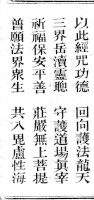 以此經咒功德　回向護法龍天
三界岳瀆靈聰　守護道場真宰
祈福保安平善　莊嚴無上菩提
普願法界衆生　共入毘盧性海